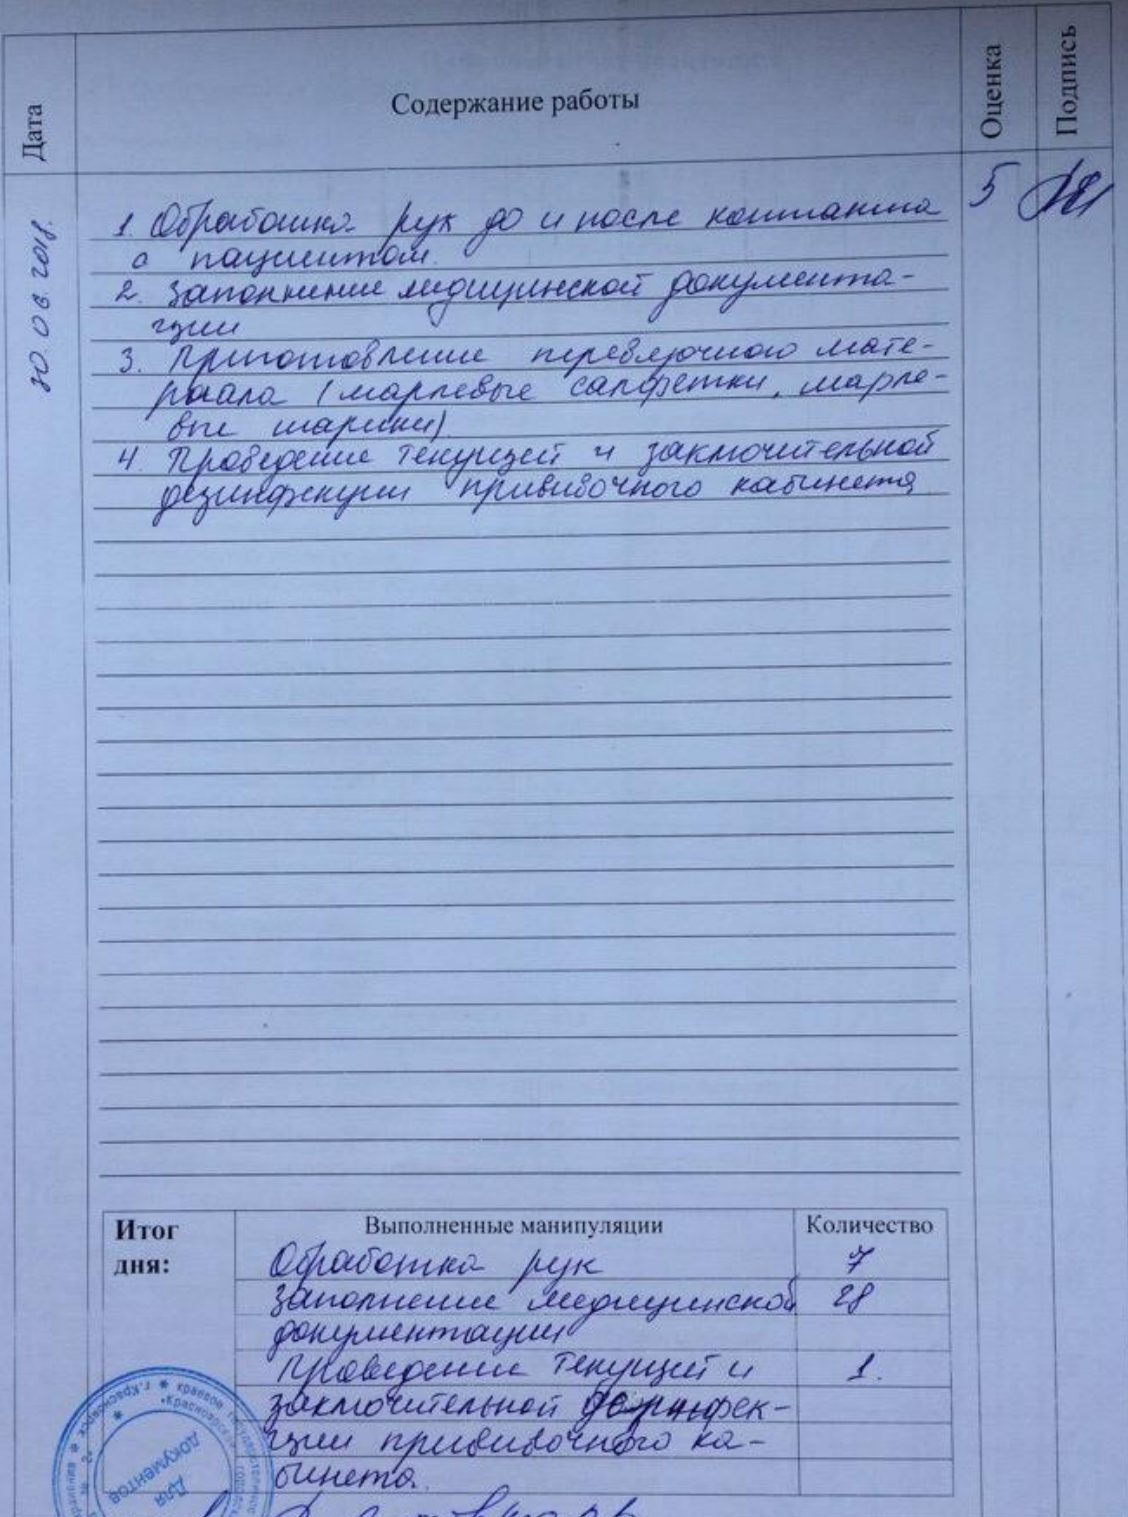 Дата
Содержание работы
Оценка
Подпись
30 06 2018.
5
1. Обработка рук до и после контакта
с пациентом.
2. Заполнение медицинской документа-
ции
3. Приготовление перевязочного мате-
риала (марлевые салфетки, марле-
вые шарики)
4. Проведение текущей и заключительной
дезинфекции прививочного кабинета
Итог
дня:
Выполненные манипуляции
Количество
Обработка рук 7
Заполнение медицинской 28
документации
Проведение текущей и 1.
заключительной дезинфек-
ции прививочного ка-
бинета.
Для
документов